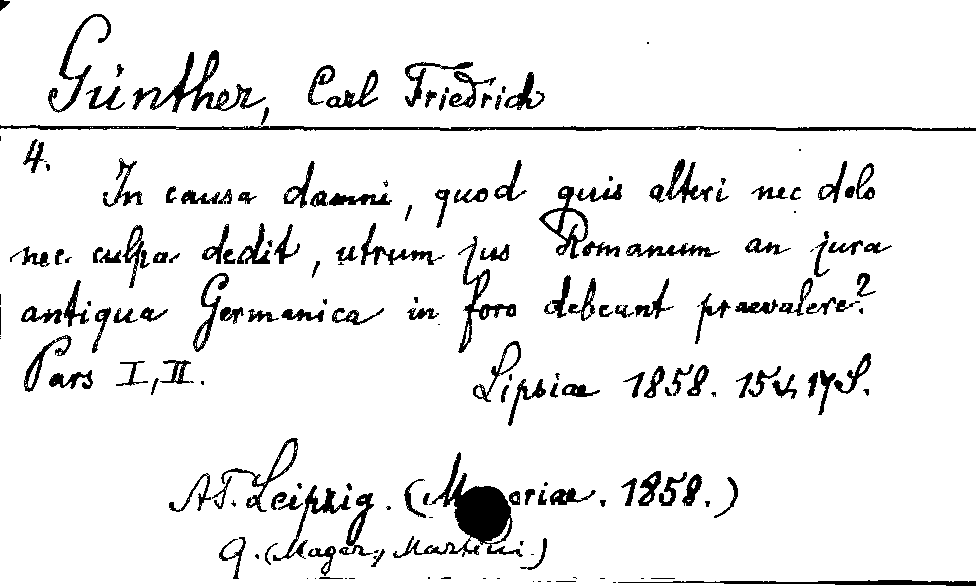 Günther, Carl Friedrich
4.
In causa damni, quod quis alteri nec dolo
nec culpa dedit, utrum jus Romanum an jura
antiqua Germanica in foro debeant praevalere?
Pars I, II.
Lipsiae 1858. 15 u. 17 S.
AT. Leipzig. (M oriae. 1858.)
9. (Mager, Martini.)